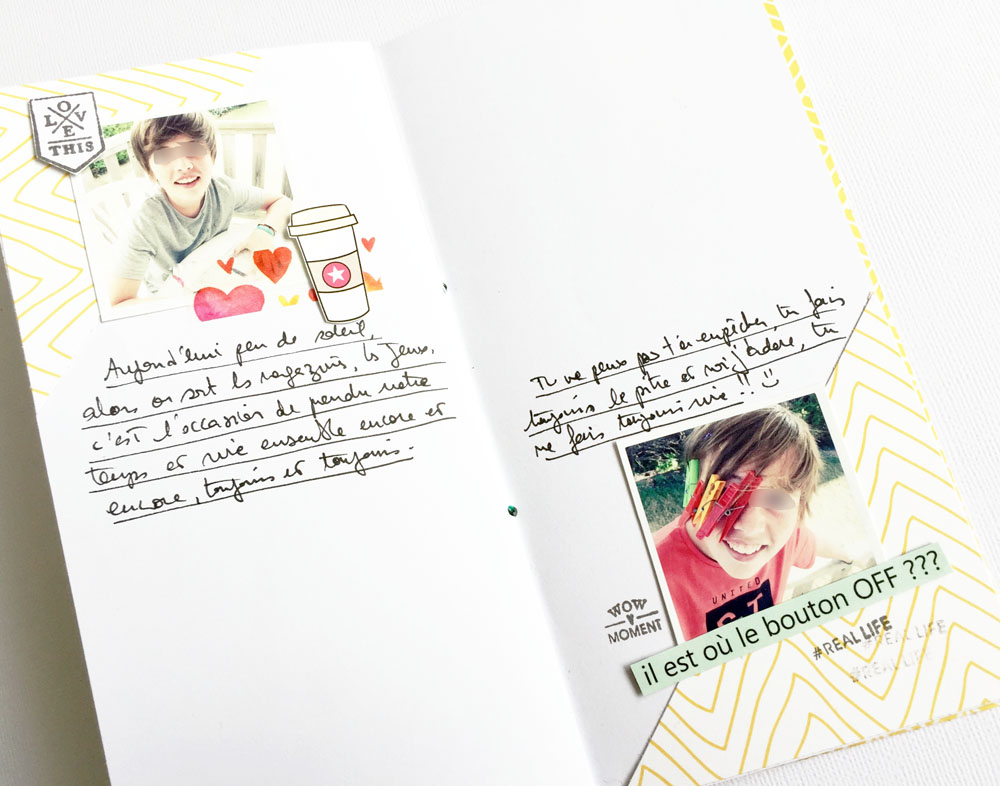 LOVE
THIS
Aujourd'hui peu de soleil,
alors on sort les magazins, les jeux,
c'est l'occasion de prendre notre
temps et rire ensemble encore et
encore, toujours et toujours.
Tu ne peux pas t'en empêcher, tu fais
toujours le pitre et moi j'adore, tu
me fais toujours rire !! :)
UNITED
ST
WOW
MOMENT
il est où le bouton OFF ???
#REAL LIFE
#REAL LIFE
#REAL LIFE